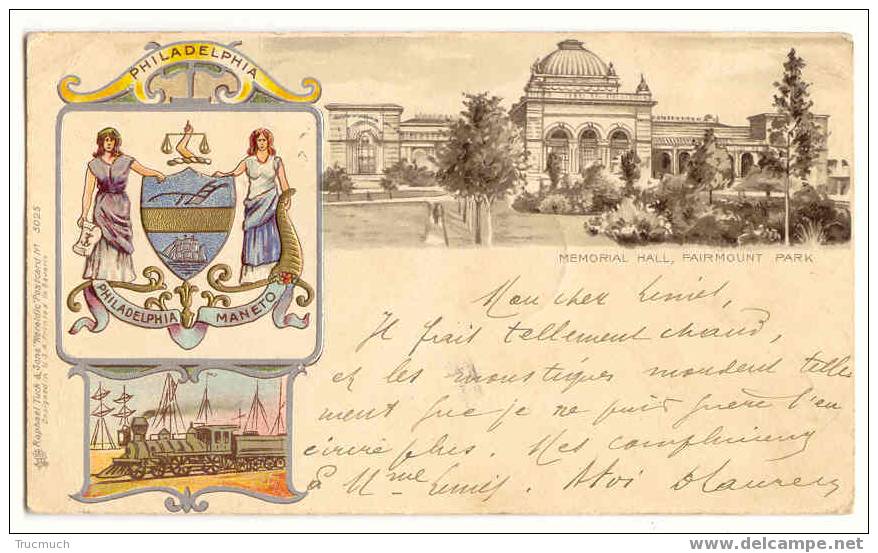 PHILADELPHIA
PHILADELPHIA MANETO
Raphael Tuck & Sons' "Heraldic" Postcard No 5025
Designed in U.S.A. Printed in Bavaria
MEMORIAL HALL, FAIRMOUNT PARK
Mon cher
Il fait tellement chaud,
et les moustiques mordent telle
ment que je ne puis guère t'en
écrire plus. Mes compliments
à Mme
Trucmuch
www.delcampe.net